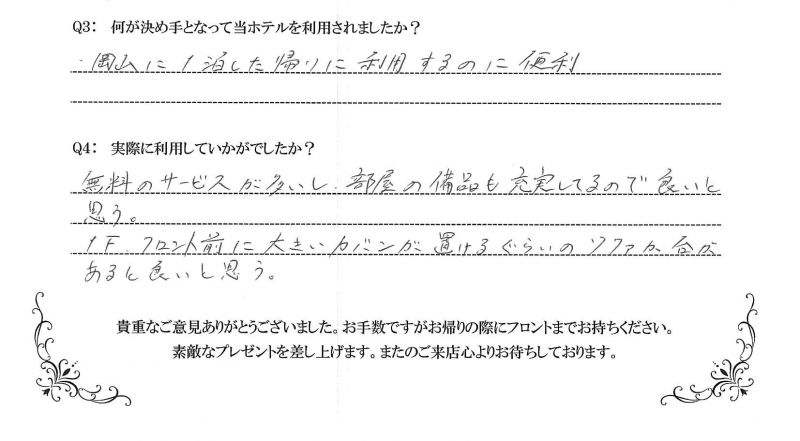 Q3: 何が決め手となって当ホテルを利用されましたか？
・岡山に1泊した帰りに利用するのに便利
Q4: 実際に利用していかがでしたか？
無料のサービスが多いし、部屋の備品も充実してるので良いと
思う。
1F、フロント前に大きいカバンが置けるぐらいのソファか台が
あると良いと思う。
貴重なご意見ありがとうございました。お手数ですがお帰りの際にフロントまでお持ちください。
素敵なプレゼントを差し上げます。またのご来店心よりお待ちしております。